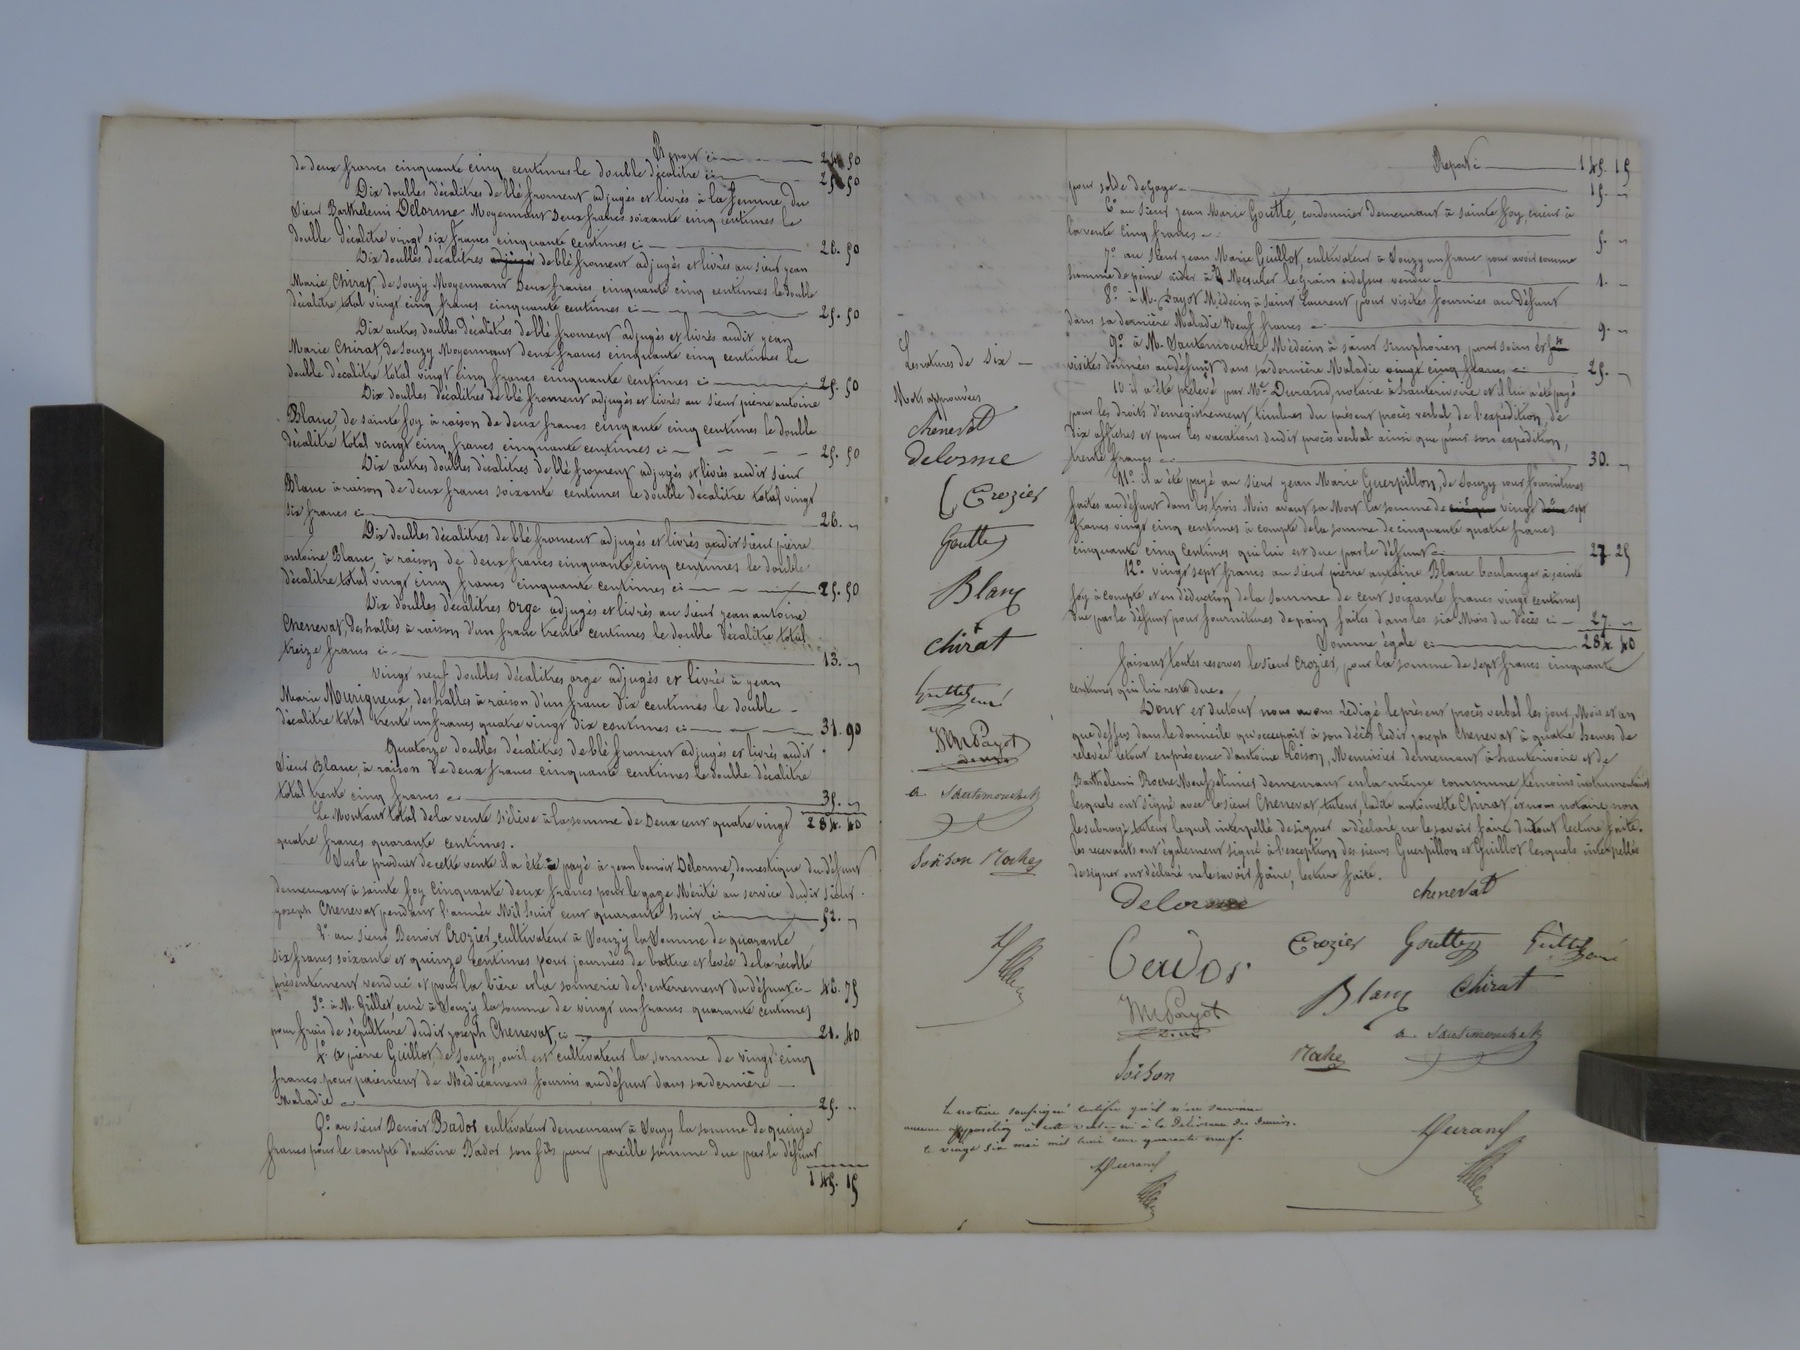 Report ci 24 50
de deux francs cinquante cinq centimes le double décalitre ci 25 50
Dix doubles décalitres de blé froment adjugés et livrés à la femme du
Sieur Barthelemi Delorme Moyennant deux francs soixante cinq centimes le
double décalitre vingt six francs cinquante centimes ci 26. 50
Dix doubles décalitres adjugés de blé froment adjugés et livrés au sieur jean
Marie Chirat, de Souzy Moyennant deux francs cinquante cinq centimes le double
décalitre total vingt cinq francs cinquante centimes ci 25. 50
Dix autres doubles décalitres de blé froment adjugés et livrés audit jean
Marie Chirat, de Souzy Moyennant deux francs cinquante cinq centimes le
double décalitre total vingt cinq francs cinquante centimes ci 25. 50
Dix doubles décalitres de blé froment adjugés et livrés au sieur pierre antoine
Blanc, de sainte foy à raison de deux francs cinquante cinq centimes le double
décalitre total vingt cinq francs cinquante centimes ci 25. 50
Dix autres doubles décalitres de blé froment adjugés et livrés audit sieur
Blanc à raison de deux francs soixante centimes le double décalitre total vingt
six francs ci 26. "
Dix doubles décalitres de blé froment adjugés et livrés audit sieur pierre
antoine Blanc, à raison de deux francs cinquante cinq centimes le double
décalitre total vingt cinq francs cinquante centimes ci 25. 50
Dix doubles décalitres orge adjugés et livrés au sieur jean antoine
Chenevat, des halles à raison d'un franc trente centimes le double décalitre total
treize francs ci 13. "
Vingt neuf doubles décalitres orge adjugés et livrés à jean
Marie Murigneux, des halles à raison d'un franc dix centimes le double
décalitre total trente un francs quatre vingt dix centimes ci 31. 90
Quatorze doubles décalitres de blé froment adjugés et livrés audit
Sieur Blanc, à raison de deux francs cinquante centimes le double décalitre
total trente cinq francs ci 35. "
Le Montant total de la vente s'élève à la somme de Deux cent quatre vingt 284. 40
quatre francs quarante centimes.
Sur le produit de cette vente il a été payé à jean benoit Delorme, domestique du défunt
demeurant à sainte foy Cinquante deux francs pour le gage Mérité au service dudit sieur
joseph Chenevat pendant l'année Mil huit cent quarante huit ci 52. "
2° au sieur Benoit Crozier, cultivateur à Souzy la Somme de quarante
six francs soixante et quinze centimes pour journées de battue et levée de la récolte
présentement vendue et pour la bière et la sonnerie de l'enterrement du défunt ci 46. 75
3° à M. Guillet, curé à Souzy la somme de vingt un francs quarante centimes
pour frais de sépulture dudit joseph Chenevat, ci 21. 40
4° à pierre Guillot, de Souzy, où il est cultivateur la somme de vingt cinq
francs pour paiement de Médicamens fournis au défunt dans sa dernière
Maladie ci 25. "
5° au sieur Benoit Bador cultivateur demeurant à Souzy la somme de quinze
francs pour le compte d'antoine Bador son fils pour pareille somme due par le défunt
145. 15
Report ci 145. 15
pour solde de gage 15. "
6° au sieur jean Marie Goutte, cordonnier demeurant à sainte foy, crieur à
la vente cinq francs 5. "
7° au sieur jean Marie Guillot, cultivateur à Souzy un franc pour avoir comme
homme de peine aidé à Mesurer le grain cidessus vendu 1. "
8° à M. Payot Médecin à saint Laurent, pour visites fournies au défunt
dans sa dernière Maladie Neuf francs 9. "
9° à M. Sautemouche Médecin à saint simphorien, pour soins et
visites données au défunt dans sa dernière Maladie vingt cinq francs ci 25. "
10 il a été prélevé par Me Durand, notaire à hauterivoire et il lui a été payé
pour les droits d'enregistrement, timbres du présent procès verbal, de l'expédition, de
dix affiches et pour les vacations dudit procès verbal ainsi que pour son expédition,
trente francs 30. "
11° il a été payé au sieur jean Marie Guerpillon, de Souzy pour fournitures
faites au défunt dans les trois Mois avant sa Mort la somme de vingt sept
francs vingt cinq centimes à compte de la somme de cinquante quatre francs
cinquante cinq centimes qui lui est due par le défunt ci 27. 25
12° vingt sept francs au sieur pierre antoine Blanc boulanger à sainte
foy à compte et en déduction de la somme de cent soixante francs vingt centimes
due par le défunt pour fournitures de pain faites dans les six Mois du décès ci 27. "
Somme égale ci 284. 40
faisant toutes reserves le sieur Crozier, pour la somme de sept francs cinquante
centimes qui lui reste due.
Dont et du tout nous avons rédigé le présent procès verbal les jour, Mois et an
que dessus dans le domicile qu'occupoit à son décès ledit joseph Chenevat à quatre heures de
relevée le tout en présence d'antoine Loison, Menuisier demeurant à hauterivoire et de
Barthelemi Roche demeurant en la même commune témoins instrumentaires
lesquels ont signé avec le sieur Chenevat tuteur, ladite antoinette Chirat, et nous notaire non
le subrogé tuteur lequel interpellé de signer a déclaré ne le savoir faire du tout lecture faite.
les recevants ont également signé à l'exception des sieurs Guerpillon et Guillot lesquels interpellés
de signer ont déclaré ne le savoir faire, lecture faite.
Les ratures de six
Mots approuvées
chenevat
delorme
Crozier
Goutte
Blanc
Chirat
Guillet curé
M Payot
a. Sautemouche
Loison Roche
Delorme chenevat
Bador Crozier Goutte Guillet curé
Blanc Chirat
M Payot
a. Sautemouche
Loison Roche
Durand
Le notaire soussigné certifie qu'il n'est survenu
aucune opposition à cette vente ni à la délivrance des deniers.
le vingt six mai mil huit cent quarante neuf.
Durand